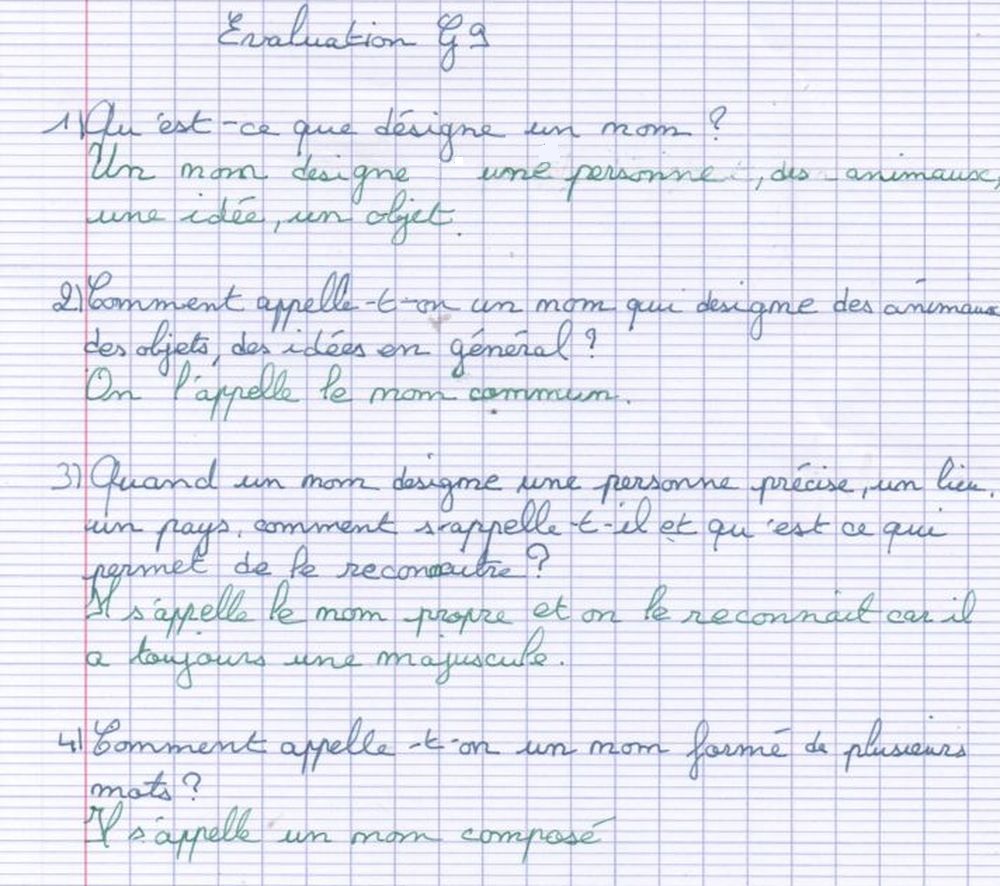 Evaluation G9
1) Qu'est-ce que désigne un nom ?
Un nom designe une personne, des animaux,
une idée, un objet.
2) Comment appelle-t-on un nom qui designe des animaux
des objets, des idées en général ?
On l'appelle le nom commun.
3) Quand un nom designe une personne précise, un lieu,
un pays, comment s'appelle-t-il et qu'est ce qui
permet de le reconnaitre ?
Il s'appelle le nom propre et on le reconnait car il
a toujours une majuscule.
4) Comment appelle-t-on un nom formé de plusieurs
mots ?
Il s'appelle un nom composé